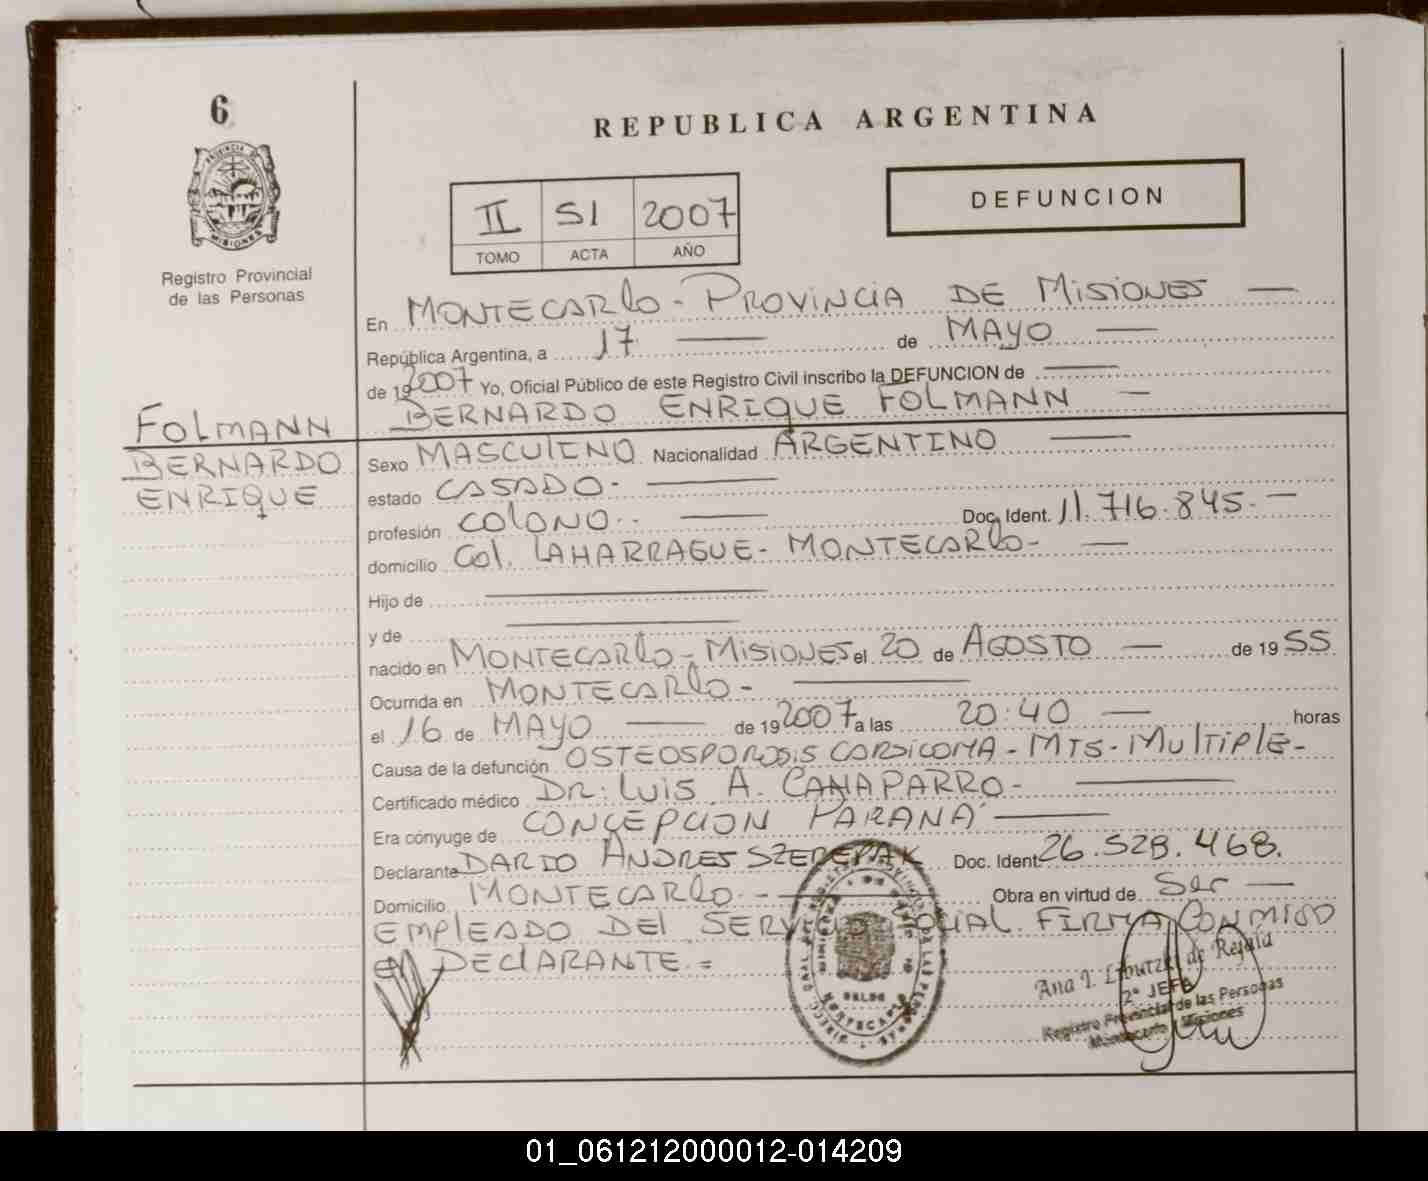 6
REPUBLICA ARGENTINA
DEFUNCION
II 51 2007
TOMO ACTA AÑO
PROVINCIA DE
MISIONES
Registro Provincial
de las Personas
En MONTECARLO - PROVINCIA DE MISIONES —
República Argentina, a 17 — de MAYO —
de 19 2007 Yo, Oficial Público de este Registro Civil inscribo la DEFUNCION de —
BERNARDO ENRIQUE FOLMANN —
FOLMANN
BERNARDO
ENRIQUE
Sexo MASCULINO Nacionalidad ARGENTINO —
estado CASADO. —
profesión COLONO.. — Doc. Ident. 11.716.845. —
domicilio Col. LAHARRAGUE - MONTECARLO - —
Hijo de —
y de —
nacido en MONTECARLO - MISIONES el 20 de AGOSTO — de 19 55
Ocurrida en MONTECARLO - —
el 16 de MAYO — de 19 2007 a las 20:40 — horas
Causa de la defunción OSTEOSPOROSIS CARSICOMA - MTS - MULTIPLE -
Certificado médico DR: LUIS A. CANAPARRO - —
Era cónyuge de CONCEPCION PARANA —
Declarante DARIO ANDRES SZEREPAK Doc. Ident. 26.528.468.
Domicilio MONTECARLO - — Obra en virtud de Ser —
EMPLEADO DEL SERVICIO SOCIAL FIRMA CONMIGO
el DECLARANTE. =
2ª JEFA
Registro Provincial de las Personas
Montecarlo - Misiones
01_061212000012-014209